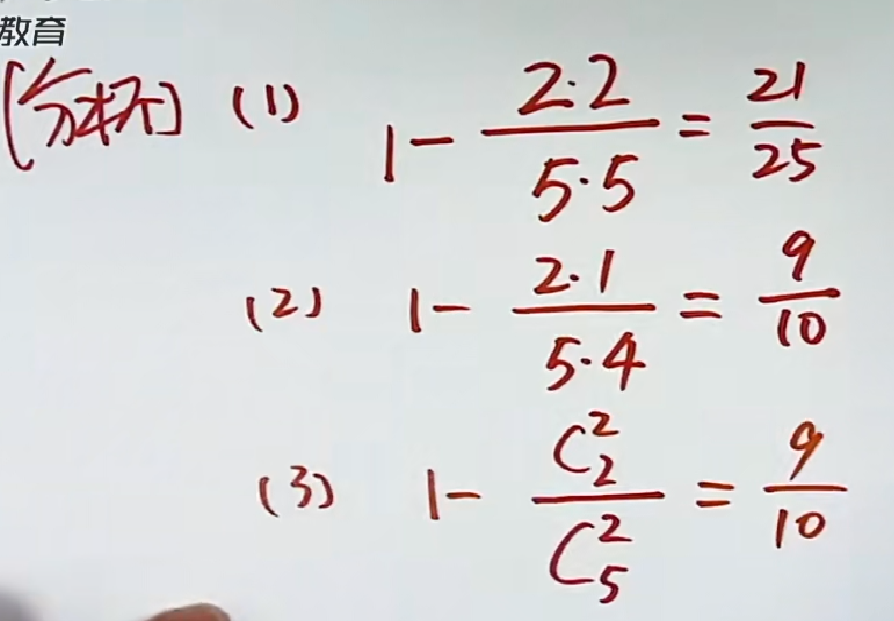 教育
[分析] (1) 1 - \frac{2·2}{5·5} = \frac{21}{25}
(2) 1 - \frac{2·1}{5·4} = \frac{9}{10}
(3) 1 - \frac{C_2^2}{C_5^2} = \frac{9}{10}